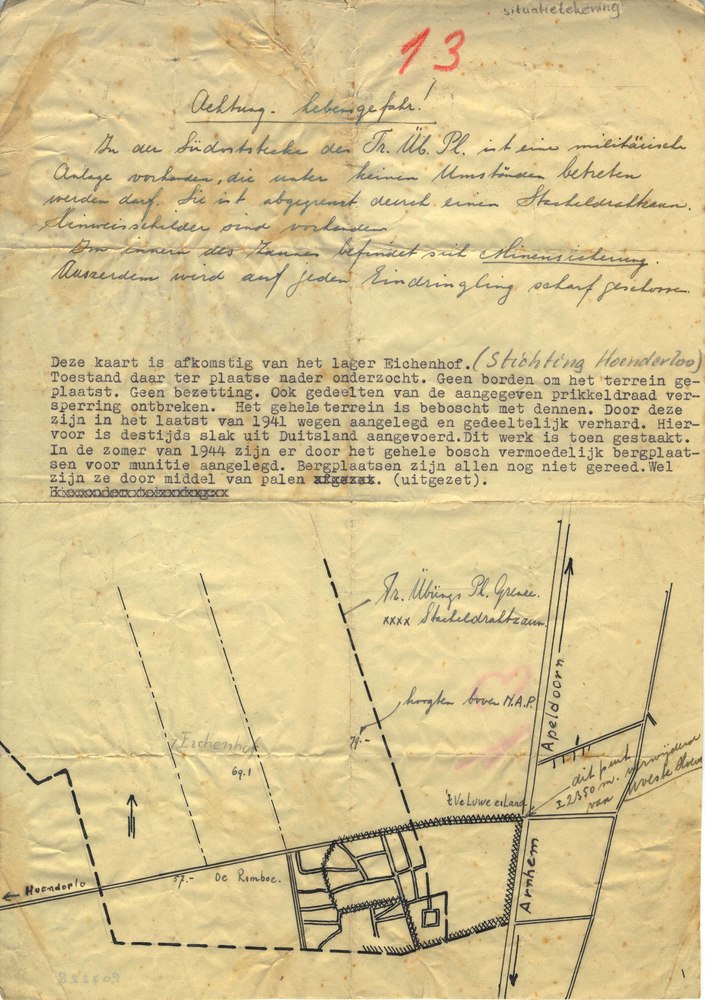 situatietekening
13
Achtung. Lebensgefahr!
In der Südostecke des Tr. Üb. Pl. ist eine militärische
Anlage vorhanden, die unter keinen Umständen betreten
werden darf. Sie ist abgegrenzt deurch einen Stacheldrahtzaun.
Hinweisschilder sind vorhanden
Im innern des Zaunes befindet sich Minensicherung.
Auszerdem wird auf jeden Eindringling scharf geschossen
Deze kaart is afkomstig van het lager Eichenhof. (Stichting Hoenderloo)
Toestand daar ter plaatse nader onderzocht. Geen borden om het terrein ge-
plaatst. Geen bezetting. Ook gedeelten van de aangegeven prikkeldraad ver-
sperring ontbreken. Het gehele terrein is beboscht met dennen. Door deze
zijn in het laatst van 1941 wegen aangelegd en gedeeltelijk verhard. Hier-
voor is destijds slak uit Duitsland aangevoerd. Dit werk is toen gestaakt.
In de zomer van 1944 zijn er door het gehele bosch vermoedelijk bergplaat-
sen voor munitie aangelegd. Bergplaatsen zijn allen nog niet gereed. Wel
zijn ze door middel van palen (uitgezet).
Tr. Übungs Pl. Grense.
xxxx Stacheldrahtzaun
hoogten boven N.A.P.
79.-
Apeldoorn
Eichenhof
69.1
dit punt
± 2350 m. verwijderd
van Woeste Hoeve
't Veluwe eiland
Arnhem
57.-
De Rimboe.
Hoenderlo
1